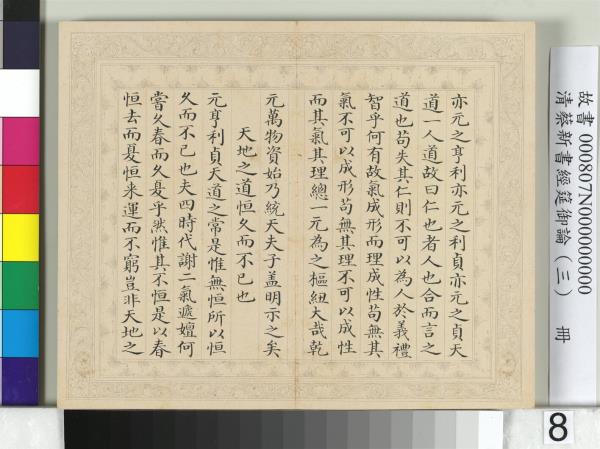 亦元之亨利亦元之利貞亦元之貞天
道一人道故曰仁也者人也合而言之
道也苟失其仁則不可以為人於義禮
智乎何有故氣成形而理成性苟無其
氣不可以成形苟無其理不可以成性
而其氣其理總一元為之樞紐大哉乾
元萬物資始乃統天夫子蓋明示之矣
天地之道恒久而不已也
元亨利貞天道之常是惟無恒所以恒
久而不已也夫四時代謝二氣遞嬗何
嘗久春而久夏乎然惟其不恒是以春
恒去而夏恒來運而不窮豈非天地之
故書 000807N000000000
清蔡新書經筵御論（三） 冊
8